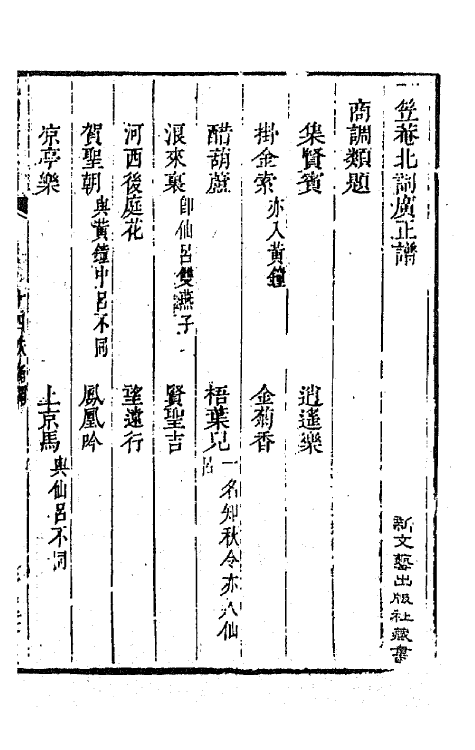 笠菴北詞廣正譜
新文藝出版社藏書
商調類題
集賢賓 逍遙樂
掛金索 亦入黃鐘 金菊香
醋葫蘆 梧葉兒 一名知秋令亦入仙呂
浪來裏 卽仙呂雙燕子 賢聖吉
河西後庭花 望遠行
賀聖朝 與黃鐘中呂不同 鳳凰吟
凉亭樂 上京馬 與仙呂不同